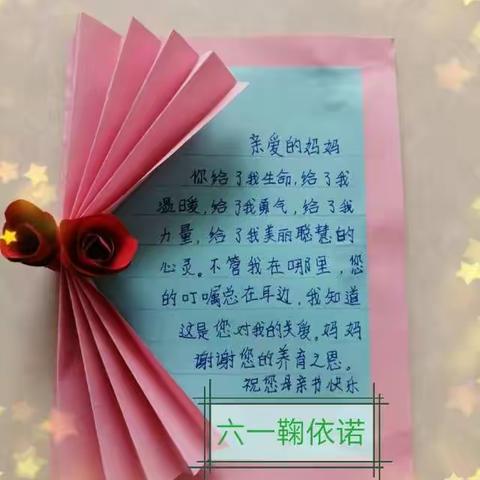 亲爱的妈妈
你给了我生命,给了我
温暖,给了我勇气,给了我
力量,给了我美丽聪慧的
心灵。不管我在哪里,您
的叮嘱总在耳边,我知道
这是您对我的关爱。妈妈
谢谢您的养育之恩。
祝您母亲节快乐
六一鞠依诺